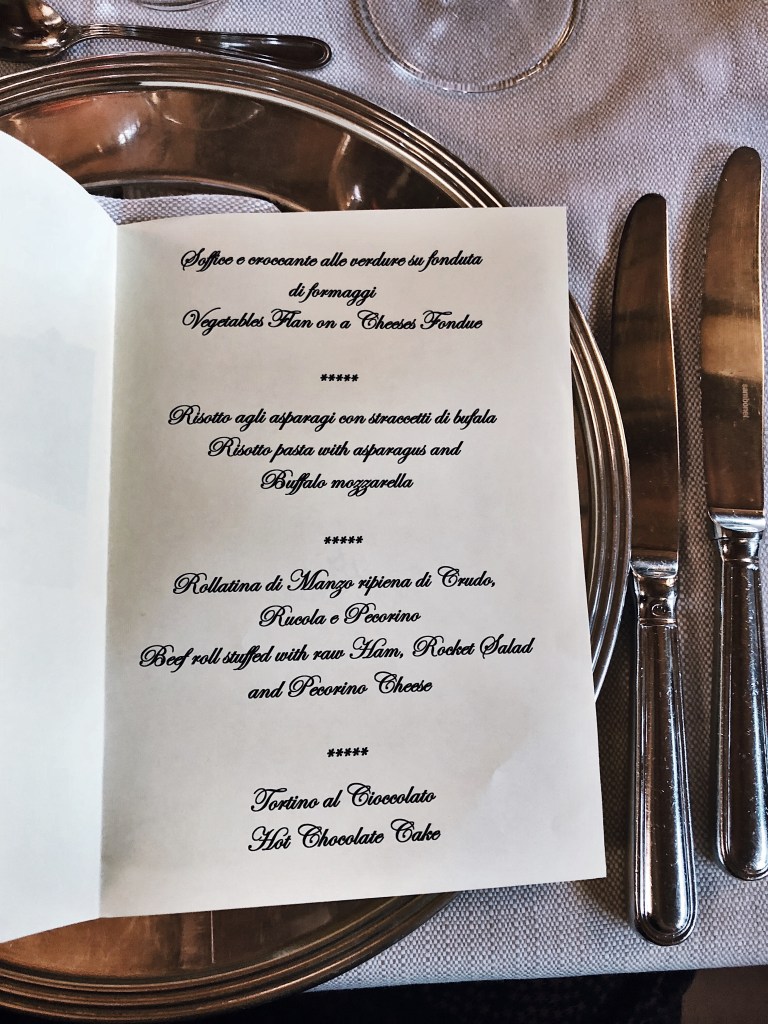 Soffice e croccante alle verdure su fonduta
di formaggi
Vegetables Flan on a Cheeses Fondue
*****
Risotto agli asparagi con straccetti di bufala
Risotto pasta with asparagus and
Buffalo mozzarella
*****
Rollatina di Manzo ripiena di Crudo,
Rucola e Pecorino
Beef roll stuffed with raw Ham, Rocket Salad
and Pecorino Cheese
*****
Tortino al Cioccolato
Hot Chocolate Cake
sambonet